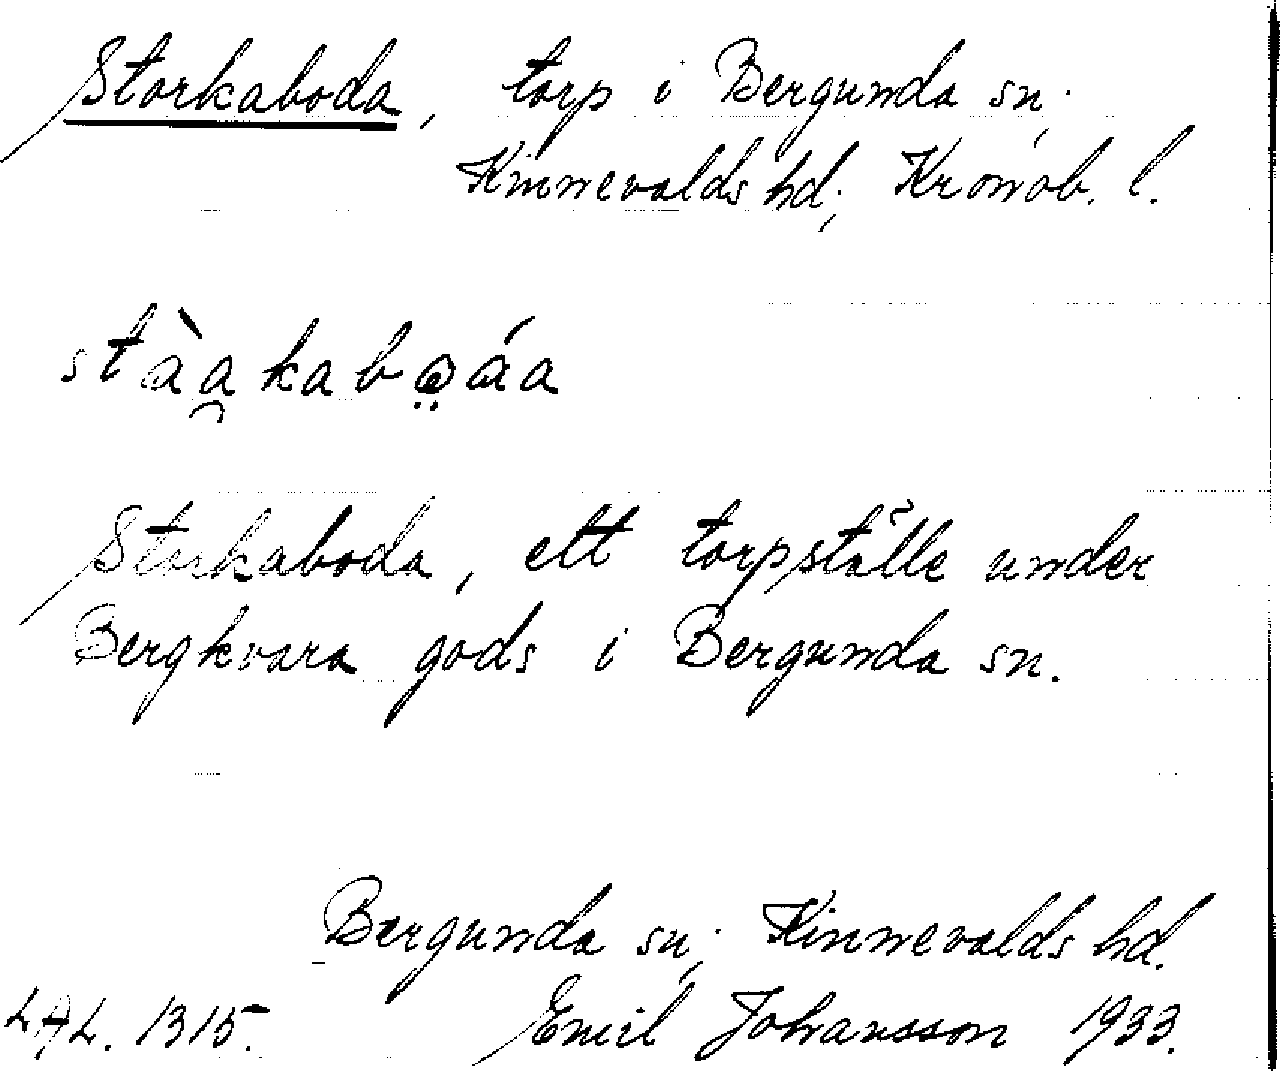 Storkaboda, torp i Bergunda sn;
Kinnevalds hd; Kronob. l.
stàa̯kabo̤áa
Storkaboda, ett torpställe under
Bergkvara gods i Bergunda sn.
Bergunda sn; Kinnevalds hd.
LAL. 1315. Emil Johansson 1933.